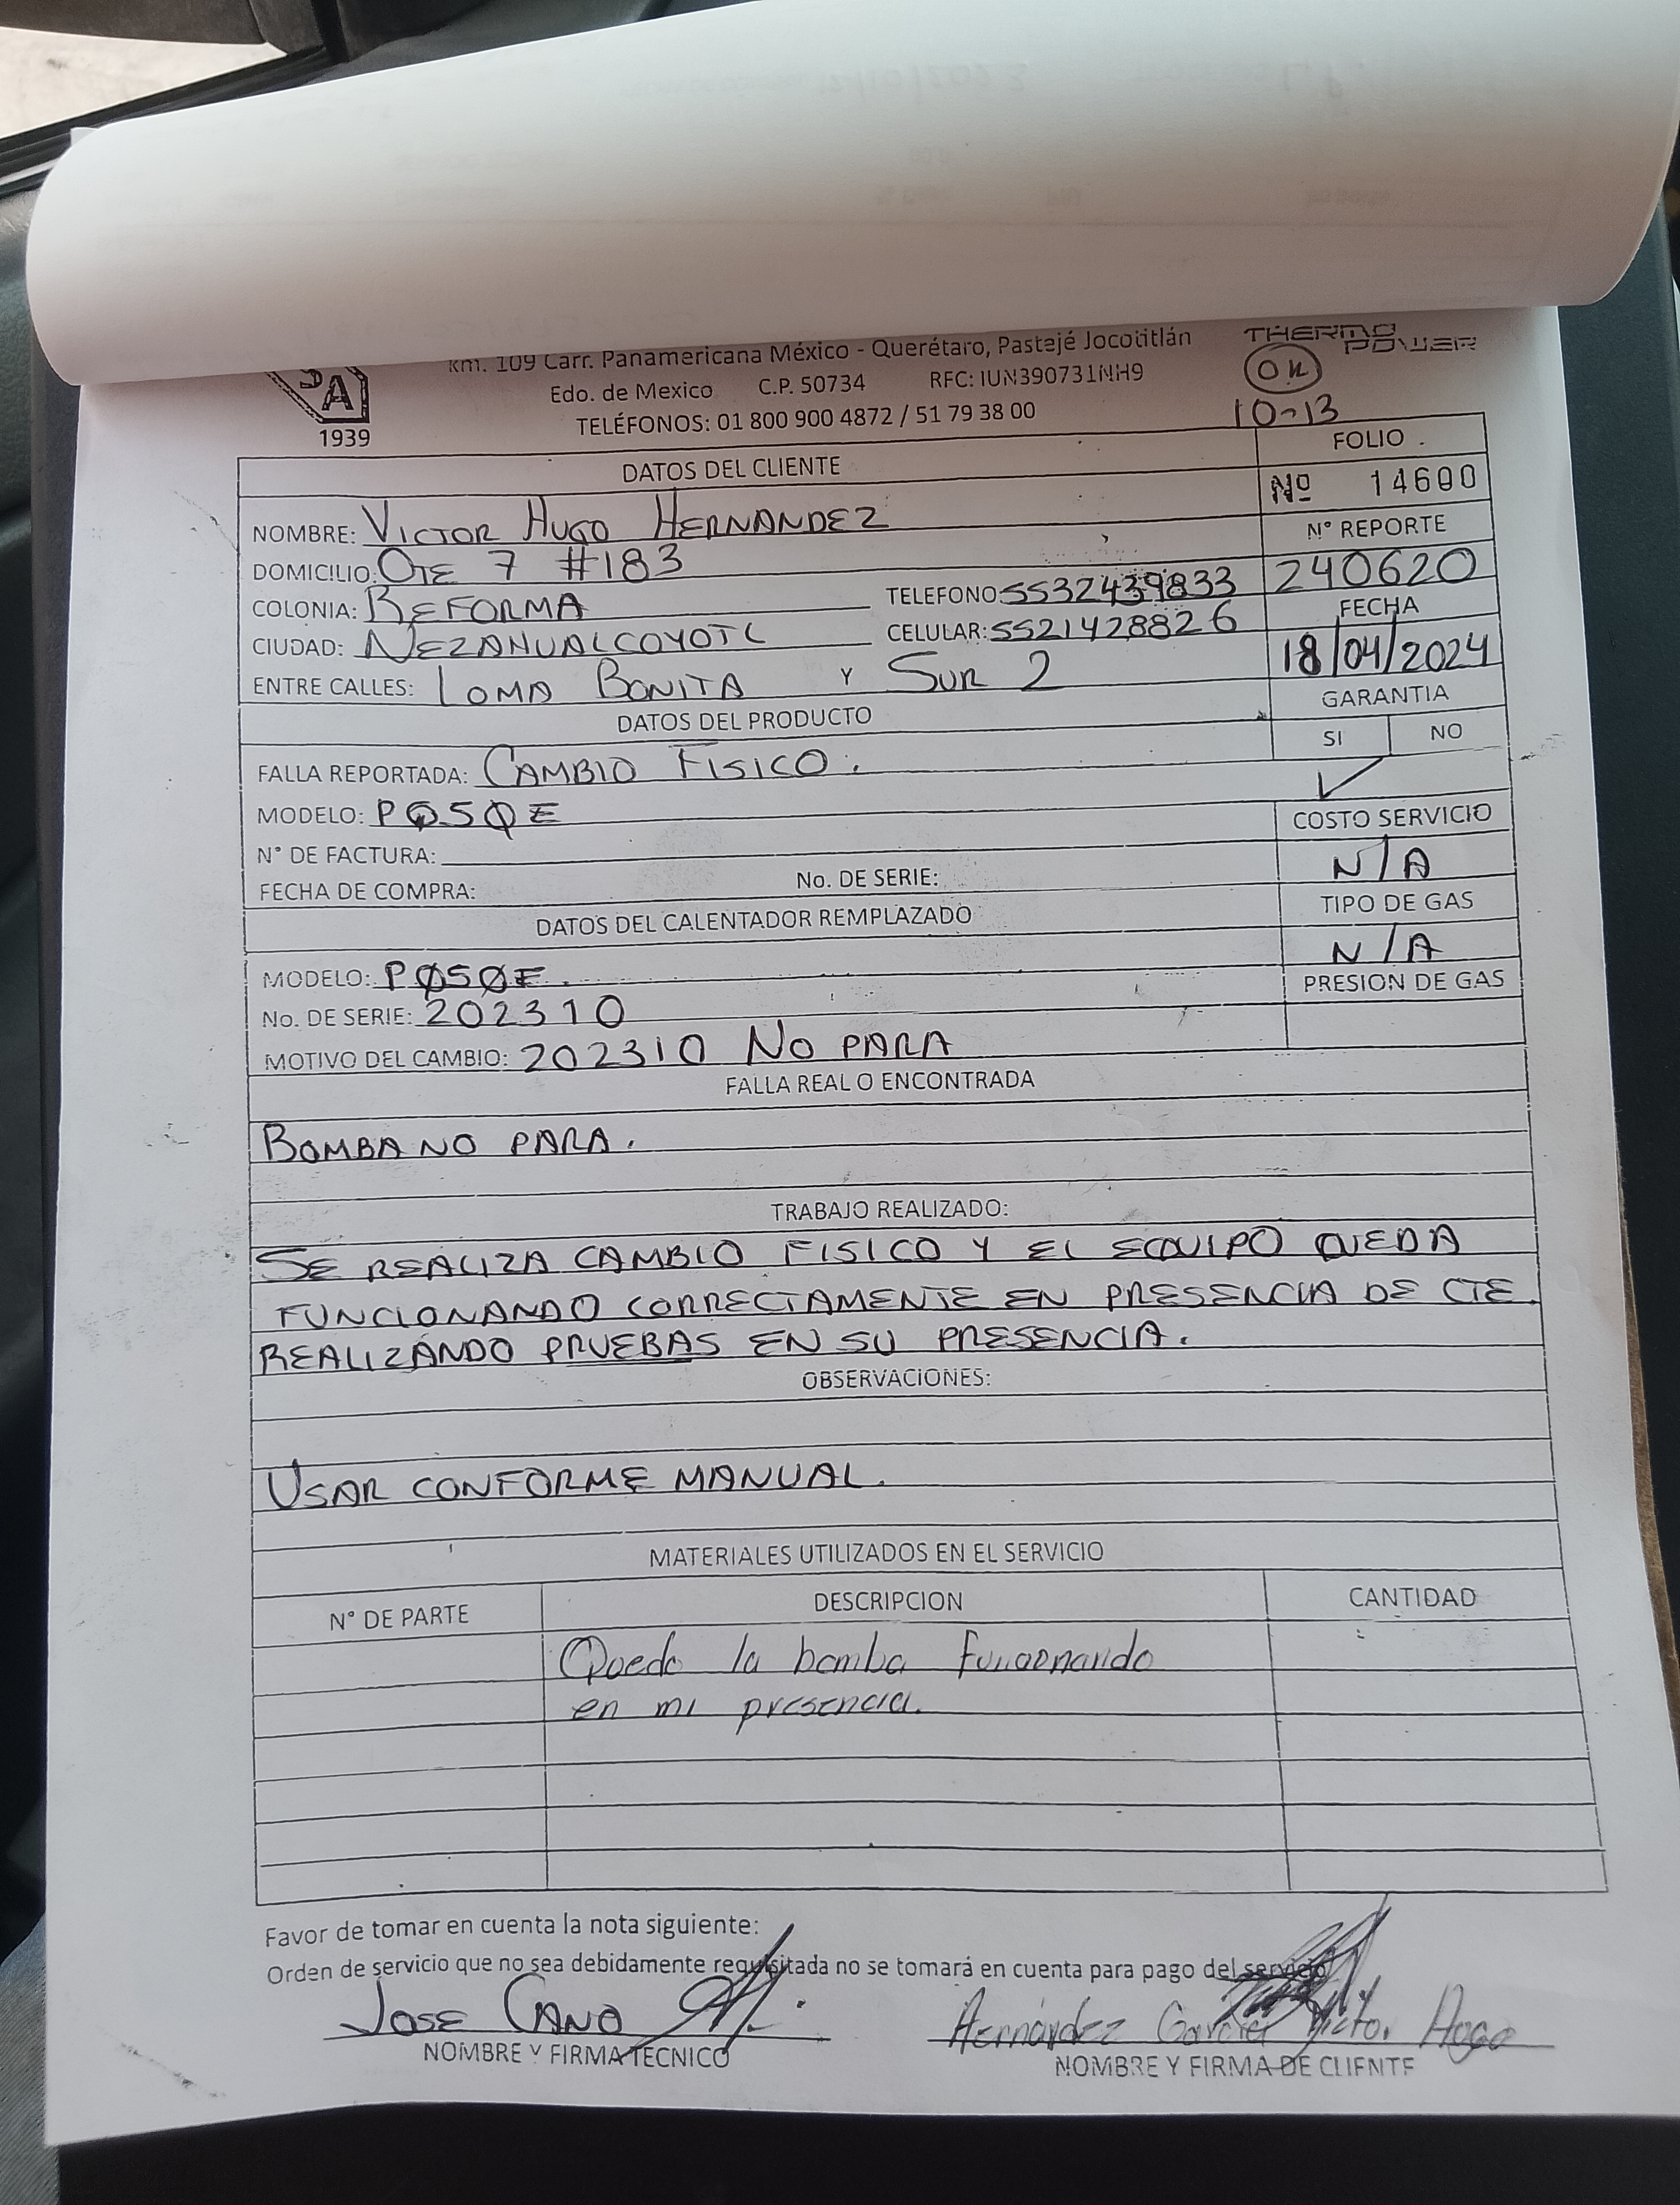 Km. 109 Carr. Panamericana México - Querétaro, Pastejé Jocotitlán
THERMO POWER
Edo. de Mexico C.P. 50734 RFC: IUN390731NH9
OK
SA
1939
TELÉFONOS: 01 800 900 4872 / 51 79 38 00
10-13
DATOS DEL CLIENTE
FOLIO
Nº 14600
NOMBRE: VICTOR HUGO HERNANDEZ
N° REPORTE
DOMICILIO: OTE 7 #183
240620
COLONIA: REFORMA
TELEFONO: 5532439833
FECHA
CIUDAD: NEZAHUALCOYOTL
CELULAR: 5521428826
18/04/2024
ENTRE CALLES: LOMA BONITA Y SUR 2
GARANTIA
DATOS DEL PRODUCTO
SI NO
FALLA REPORTADA: CAMBIO FISICO.
✓
MODELO: PØ5ØE
COSTO SERVICIO
N° DE FACTURA:
N/A
FECHA DE COMPRA: No. DE SERIE:
TIPO DE GAS
DATOS DEL CALENTADOR REMPLAZADO
N/A
MODELO: PØ5ØE.
PRESION DE GAS
No. DE SERIE: 202310
MOTIVO DEL CAMBIO: 202310 NO PARA
FALLA REAL O ENCONTRADA
BOMBA NO PARA.
TRABAJO REALIZADO:
SE REALIZA CAMBIO FISICO Y EL EQUIPO QUEDA
FUNCIONANDO CORRECTAMENTE EN PRESENCIA DE CTE.
REALIZANDO PRUEBAS EN SU PRESENCIA.
OBSERVACIONES:
USAR CONFORME MANUAL.
MATERIALES UTILIZADOS EN EL SERVICIO
N° DE PARTE DESCRIPCION CANTIDAD
Quedo la bomba funcionando
en mi presencia.
Favor de tomar en cuenta la nota siguiente:
Orden de servicio que no sea debidamente requisitada no se tomará en cuenta para pago del servicio
JOSE CANO
Hernández García Victor Hugo
NOMBRE Y FIRMA TECNICO
NOMBRE Y FIRMA DE CLIENTE